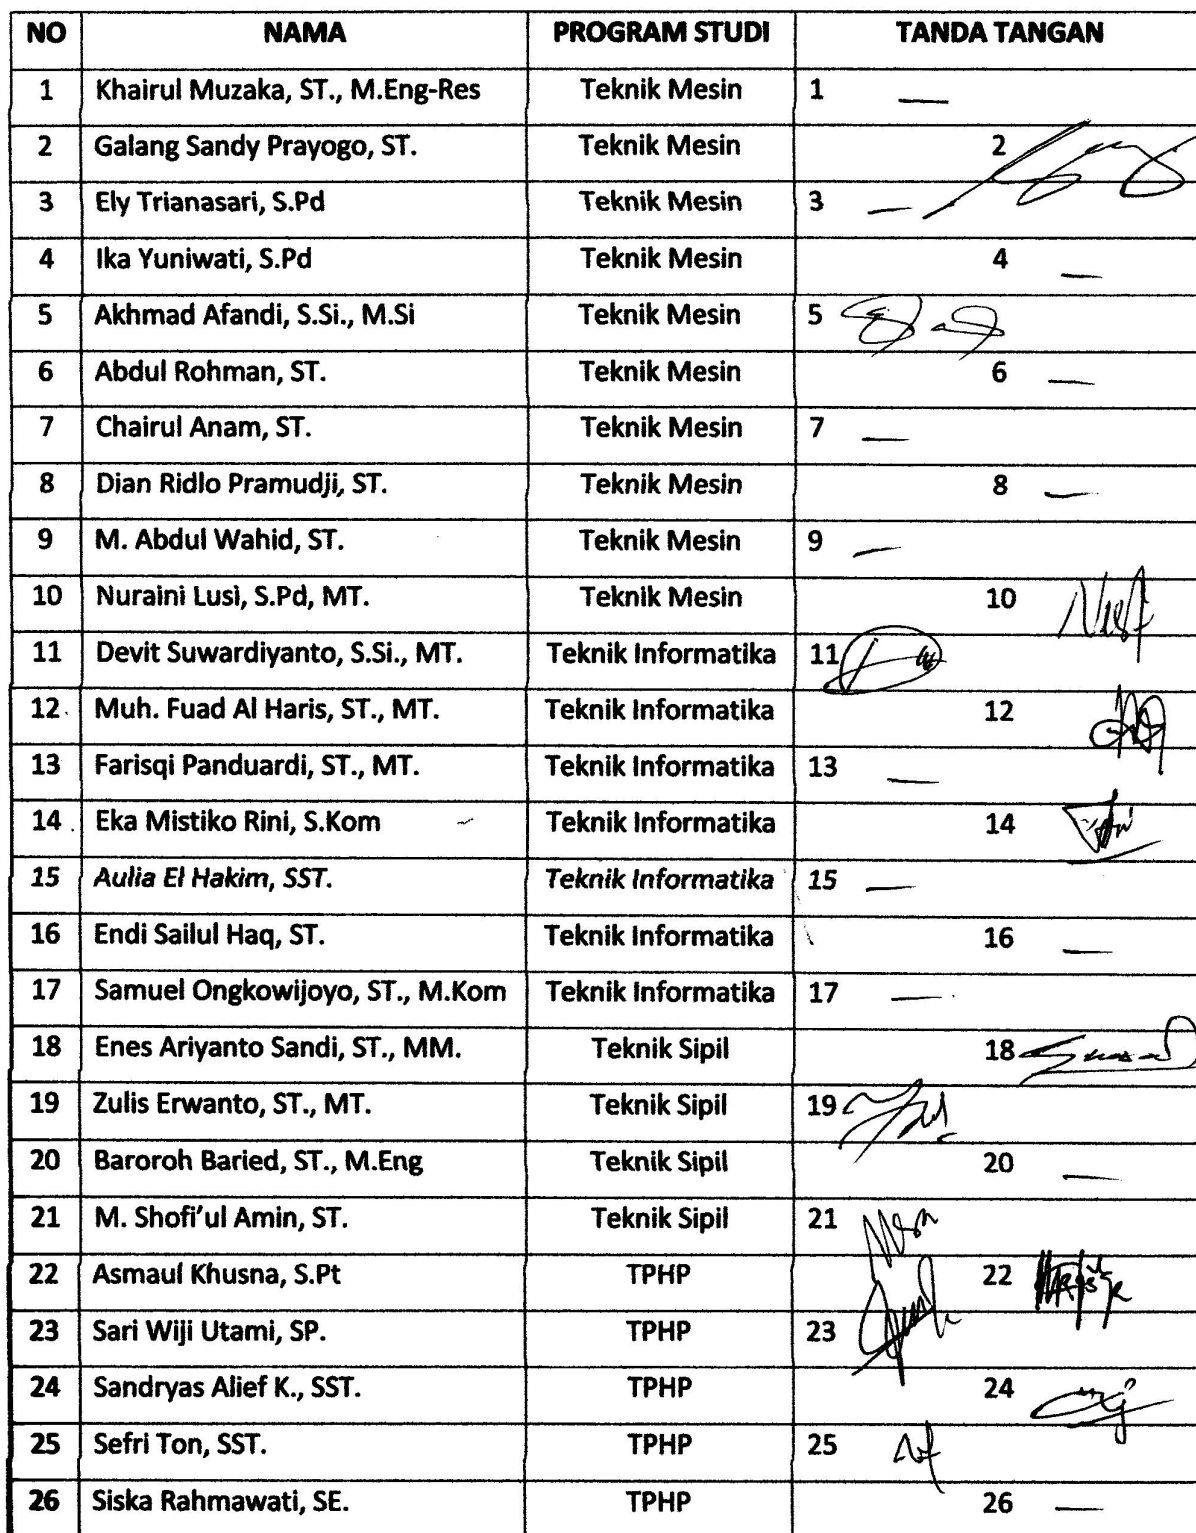 NO NAMA PROGRAM STUDI TANDA TANGAN
1 Khairul Muzaka, ST., M.Eng-Res Teknik Mesin 1 —
2 Galang Sandy Prayogo, ST. Teknik Mesin 2
3 Ely Trianasari, S.Pd Teknik Mesin 3 —
4 Ika Yuniwati, S.Pd Teknik Mesin 4 —
5 Akhmad Afandi, S.Si., M.Si Teknik Mesin 5
6 Abdul Rohman, ST. Teknik Mesin 6 —
7 Chairul Anam, ST. Teknik Mesin 7 —
8 Dian Ridlo Pramudji, ST. Teknik Mesin 8 —
9 M. Abdul Wahid, ST. Teknik Mesin 9 —
10 Nuraini Lusi, S.Pd, MT. Teknik Mesin 10
11 Devit Suwardiyanto, S.Si., MT. Teknik Informatika 11
12 Muh. Fuad Al Haris, ST., MT. Teknik Informatika 12
13 Farisqi Panduardi, ST., MT. Teknik Informatika 13 —
14 Eka Mistiko Rini, S.Kom Teknik Informatika 14
15 Aulia El Hakim, SST. Teknik Informatika 15 —
16 Endi Sailul Haq, ST. Teknik Informatika 16 —
17 Samuel Ongkowijoyo, ST., M.Kom Teknik Informatika 17 —
18 Enes Ariyanto Sandi, ST., MM. Teknik Sipil 18
19 Zulis Erwanto, ST., MT. Teknik Sipil 19
20 Baroroh Baried, ST., M.Eng Teknik Sipil 20 —
21 M. Shofi'ul Amin, ST. Teknik Sipil 21
22 Asmaul Khusna, S.Pt TPHP 22
23 Sari Wiji Utami, SP. TPHP 23
24 Sandryas Alief K., SST. TPHP 24
25 Sefri Ton, SST. TPHP 25
26 Siska Rahmawati, SE. TPHP 26 —